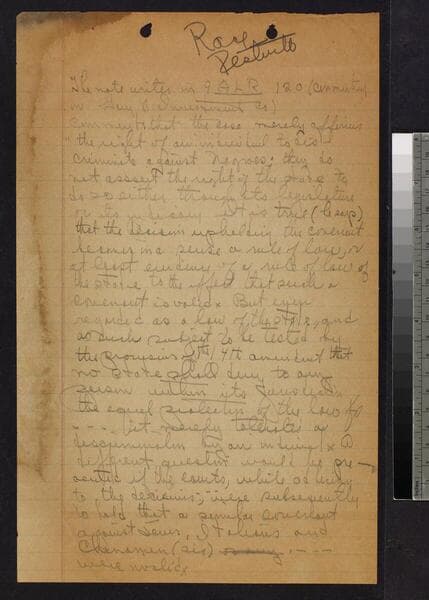 Race
Restrict
The note writer in 9 A L R 120 (commenting
on Gary v. Improvement Co)
comments that the case merely affirms
"the right of an individual to dis-
criminate against Negroes; they do
not assert the right of the state to
do so either through its legislature
or its judiciary. It is true (he says)
that the decision upholding the covenant
becomes in a sense a rule of law, or
at least evidence of a rule of law of
the state to the effect that such a
covenant is valid x But even
regarded as a law of the state, and
as such subject to be tested by
the provisions of the 14th amendment that
no state shall deny to any
person within its jurisdiction
the equal protection of the law
- - - - it merely tolerates a
discrimination by an individual x A
different question would be pre-
sented if the courts, while adhering
to the decisions, were subsequently
to hold that a similar covenant
against Jews, Italians and
Chinamen (sic) - - - -
were invalid x